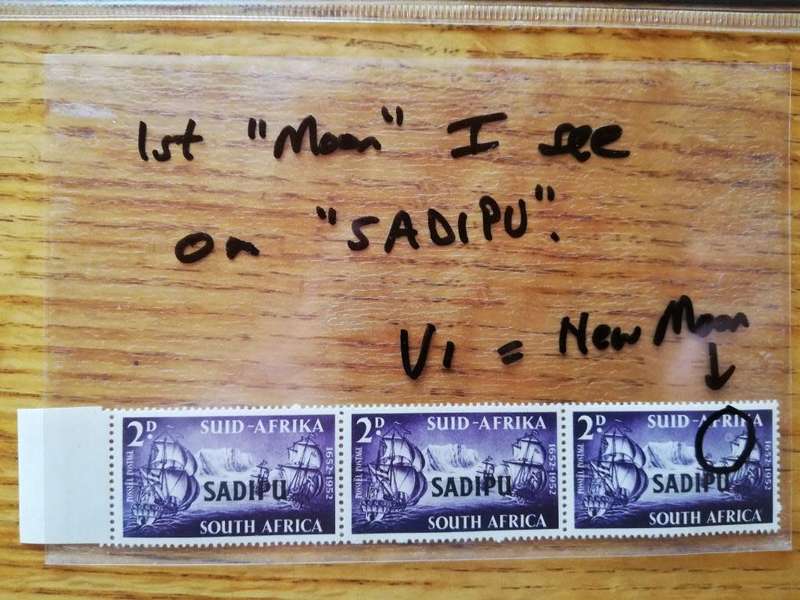 1st "Moon" I see
on "SADIPU".
V1 = New Moon
2D SUID-AFRIKA
POSSEEL POSTAGE
1652-1952
SADIPU
SOUTH AFRICA
2D SUID-AFRIKA
POSSEEL POSTAGE
1652-1952
SADIPU
SOUTH AFRICA
2D SUID-AFRIKA
POSSEEL POSTAGE
1652-1952
SADIPU
SOUTH AFRICA